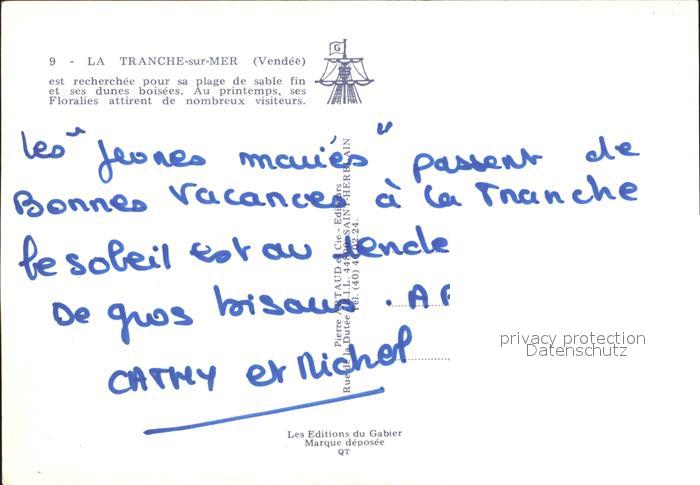 9 - LA TRANCHE-sur-MER (Vendée)
est recherchée pour sa plage de sable fin
et ses dunes boisées. Au printemps, ses
Floralies attirent de nombreux visiteurs.
G
Les "Jeunes mariés" passent de
Bonnes Vacances à La Tranche
le soleil est au rende
De gros bisous. A
CATHY et Michel
Pierre ARTAUD et Cie - Editeurs
Rue de la Dutée Z.I.L. 44800 SAINT-HERBLAIN
Tél. (40) 46.02.24.
privacy protection
Datenschutz
Les Editions du Gabier
Marque déposée
QT